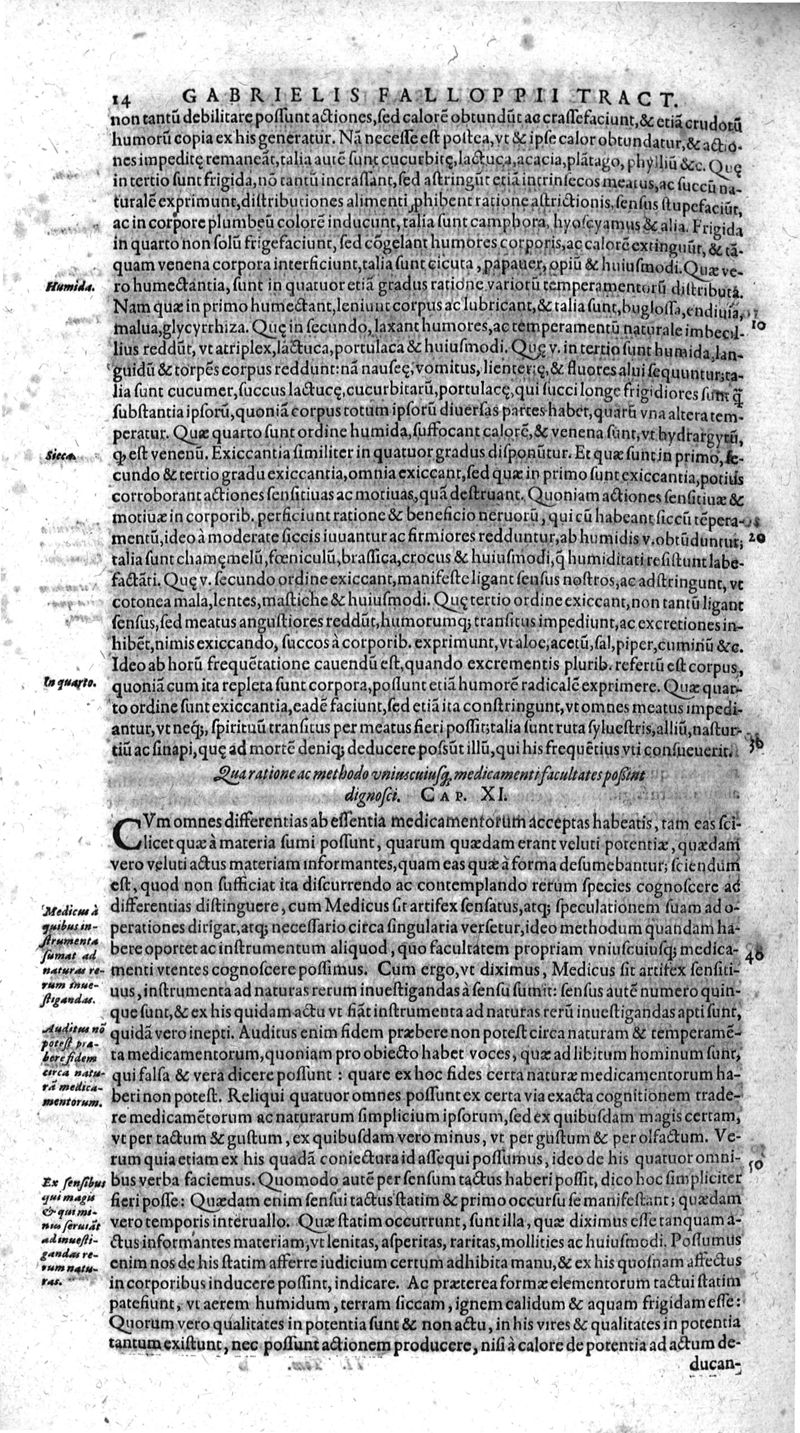 14 GABRIELIS FALLOPPII TRACT.
non tantũ debilitare poſſunt actiones, ſed calorẽ obtundũt ac craſſefaciunt, & etiã crudotũ
humorũ copia ex his generatur. Nã neceſſe eſt poſtea, vt & ipſe calor obtundatur, & actio-
nes impeditę remaneãt, talia autẽ ſunt cucurbitę, lactuca, acacia, plãtago, phylliũ &c. Quę
in tertio ſunt frigida, nõ tantũ incraſſãt, ſed aſtringũt etiã intrinſecos meatus, ac ſuccũ na-
turalẽ exprimunt, diſtributiones alimenti ꝓhibent ratione aſtrictionis, ſenſus ſtupefaciũt,
ac in corpore plumbeũ colorẽ inducunt, talia ſunt camphora, hyoſcyamus & alia. Frigida
in quarto non ſolũ frigefaciunt, ſed cõgelant humores corporis, ac calorẽ extinguũt, & tã-
quam venena corpora interficiunt, talia ſunt cicuta, papauer, opiũ & huiuſmodi. Quæ ve-
Humida.
ro humectantia, ſunt in quatuor etiã gradus ratione variorũ temperamentorũ diſtributa.
Nam quæ in primo humectant, leniunt corpus ac lubricant, & talia ſunt, bugloſſa, endiuia,
malua, glycyrrhiza. Quę in ſecundo, laxant humores, ac temperamentũ naturale imbecil- 10
lius reddũt, vt atriplex, lactuca, portulaca & huiuſmodi. Quę v. in tertio ſunt humida, lan-
guidũ & torpẽs corpus reddunt: nã nauſeę, vomitus, lienterię, & fluores alui ſequuntur; ta-
lia ſunt cucumer, ſuccus lactucę, cucurbitarũ, portulacę, qui ſucci longe frigidiores ſunt q̃
ſubſtantia ipſorũ, quoniã corpus totum ipſorũ diuerſas partes habet, quarũ vna altera tem-
peratur. Quæ quarto ſunt ordine humida, ſuffocant calorẽ, & venena ſunt, vt hydrargyrũ,
Sicca.
ꝙ eſt venenũ. Exiccantia ſimiliter in quatuor gradus diſponũtur. Et quæ ſunt in primo, ſe-
cundo & tertio gradu exiccantia, omnia exiccant, ſed quæ in primo ſunt exiccantia, potius
corroborant actiones ſenſitiuas ac motiuas, quã deſtruant. Quoniam actiones ſenſitiuæ &
motiuæ in corporib. perficiunt ratione & beneficio neruorũ, qui cũ habeant ſiccũ tẽpera-
mentũ, ideo à moderate ſiccis iuuantur ac firmiores redduntur, ab humidis v. obtũduntur; 20
talia ſunt chamęmelũ, fœniculũ, braſſica, crocus & huiuſmodi, q̃ humiditati reſiſtunt labe-
factãti. Quę v. ſecundo ordine exiccant, manifeſte ligant ſenſus noſtros, ac adſtringunt, vt
cotonea mala, lentes, maſtiche & huiuſmodi. Quę tertio ordine exiccant, non tantũ ligant
ſenſus, ſed meatus anguſtiores reddũt, humorumq; tranſitus impediunt, ac excretiones in-
hibẽt, nimis exiccando, ſuccos à corporib. exprimunt, vt aloe, acetũ, ſal, piper, cuminũ &c.
Ideo ab horũ frequẽtatione cauendũ eſt, quando excrementis plurib. refertũ eſt corpus,
In quarto.
quoniã cum ita repleta ſunt corpora, poſſunt etiã humorẽ radicalẽ exprimere. Quæ quar-
to ordine ſunt exiccantia, eadẽ faciunt, ſed etiã ita conſtringunt, vt omnes meatus impedi-
antur, vt neq; ſpirituũ tranſitus per meatus fieri poſſit; talia ſunt ruta ſylueſtris, alliũ, naſtur-
tiũ ac ſinapi, quę ad mortẽ deniq; deducere poſſũt illũ, qui his frequẽtius vti conſueuerit. 30
Qua ratione ac methodo vniuscuiusq; medicamenti facultates poßint
dignoſci. CAP. XI.
CVm omnes differentias ab eſſentia medicamentorum acceptas habeatis, tam eas ſci-
licet quæ à materia ſumi poſſunt, quarum quædam erant veluti potentiæ, quædam
vero veluti actus materiam informantes, quam eas quæ à forma deſumebantur; ſciendum
eſt, quod non ſufficiat ita diſcurrendo ac contemplando rerum ſpecies cognoſcere ad
Medicus à
quibus in-
ſtrumenta
ſumat ad
naturas re-
rum inue-
ſtigandas.
differentias diſtinguere, cum Medicus ſit artifex ſenſatus, atq; ſpeculationem ſuam ad o-
perationes dirigat, atq; neceſſario circa ſingularia verſetur, ideo methodum quandam ha-
bere oportet ac inſtrumentum aliquod, quo facultatem propriam vniuſcuiuſq; medica- 40
menti vtentes cognoſcere poſſimus. Cum ergo, vt diximus, Medicus ſit artifex ſenſiti-
uus, inſtrumenta ad naturas rerum inueſtigandas à ſenſu ſumit: ſenſus autẽ numero quin-
que ſunt, & ex his quidam actu vt fiãt inſtrumenta ad naturas rerũ inueſtigandas apti ſunt,
Auditus nõ
poteſt præ-
bere fidem
circa natu-
rã medica-
mentorum.
quidã vero inepti. Auditus enim fidem præbere non poteſt circa naturam & temperamẽ-
ta medicamentorum, quoniam pro obiecto habet voces, quæ ad libitum hominum ſunt,
qui falſa & vera dicere poſſunt : quare ex hoc fides certa naturæ medicamentorum ha-
beri non poteſt. Reliqui quatuor omnes poſſunt ex certa via exacta cognitionem trade-
re medicamẽtorum ac naturarum ſimplicium ipſorum, ſed ex quibuſdam magis certam,
vt per tactum & guſtum, ex quibuſdam vero minus, vt per guſtum & per olfactum. Ve-
rum quia etiam ex his quadã coniectura id aſſequi poſſumus, ideo de his quatuor omni- 50
Ex ſenſibus
qui magis
& qui mi-
nus ſeruiãt
ad inueſti-
gandas re-
rum natu-
ras.
bus verba faciemus. Quomodo autẽ per ſenſum tactus haberi poſſit, dico hoc ſimpliciter
fieri poſſe: Quædam enim ſenſui tactus ſtatim & primo occurſu ſe manifeſtant; quædam
vero temporis interuallo. Quæ ſtatim occurrunt, ſunt illa, quæ diximus eſſe tanquam a-
ctus informantes materiam, vt lenitas, aſperitas, raritas, mollities ac huiuſmodi. Poſſumus
enim nos de his ſtatim afferre iudicium certum adhibita manu, & ex his quoſnam affectus
in corporibus inducere poſſint, indicare. Ac præterea formæ elementorum tactui ſtatim
patefiunt, vt aerem humidum, terram ſiccam, ignem calidum & aquam frigidam eſſe:
Quorum vero qualitates in potentia ſunt & non actu, in his vires & qualitates in potentia
tantum exiſtunt, nec poſſunt actionem producere, niſi à calore de potentia ad actum de-
ducan-